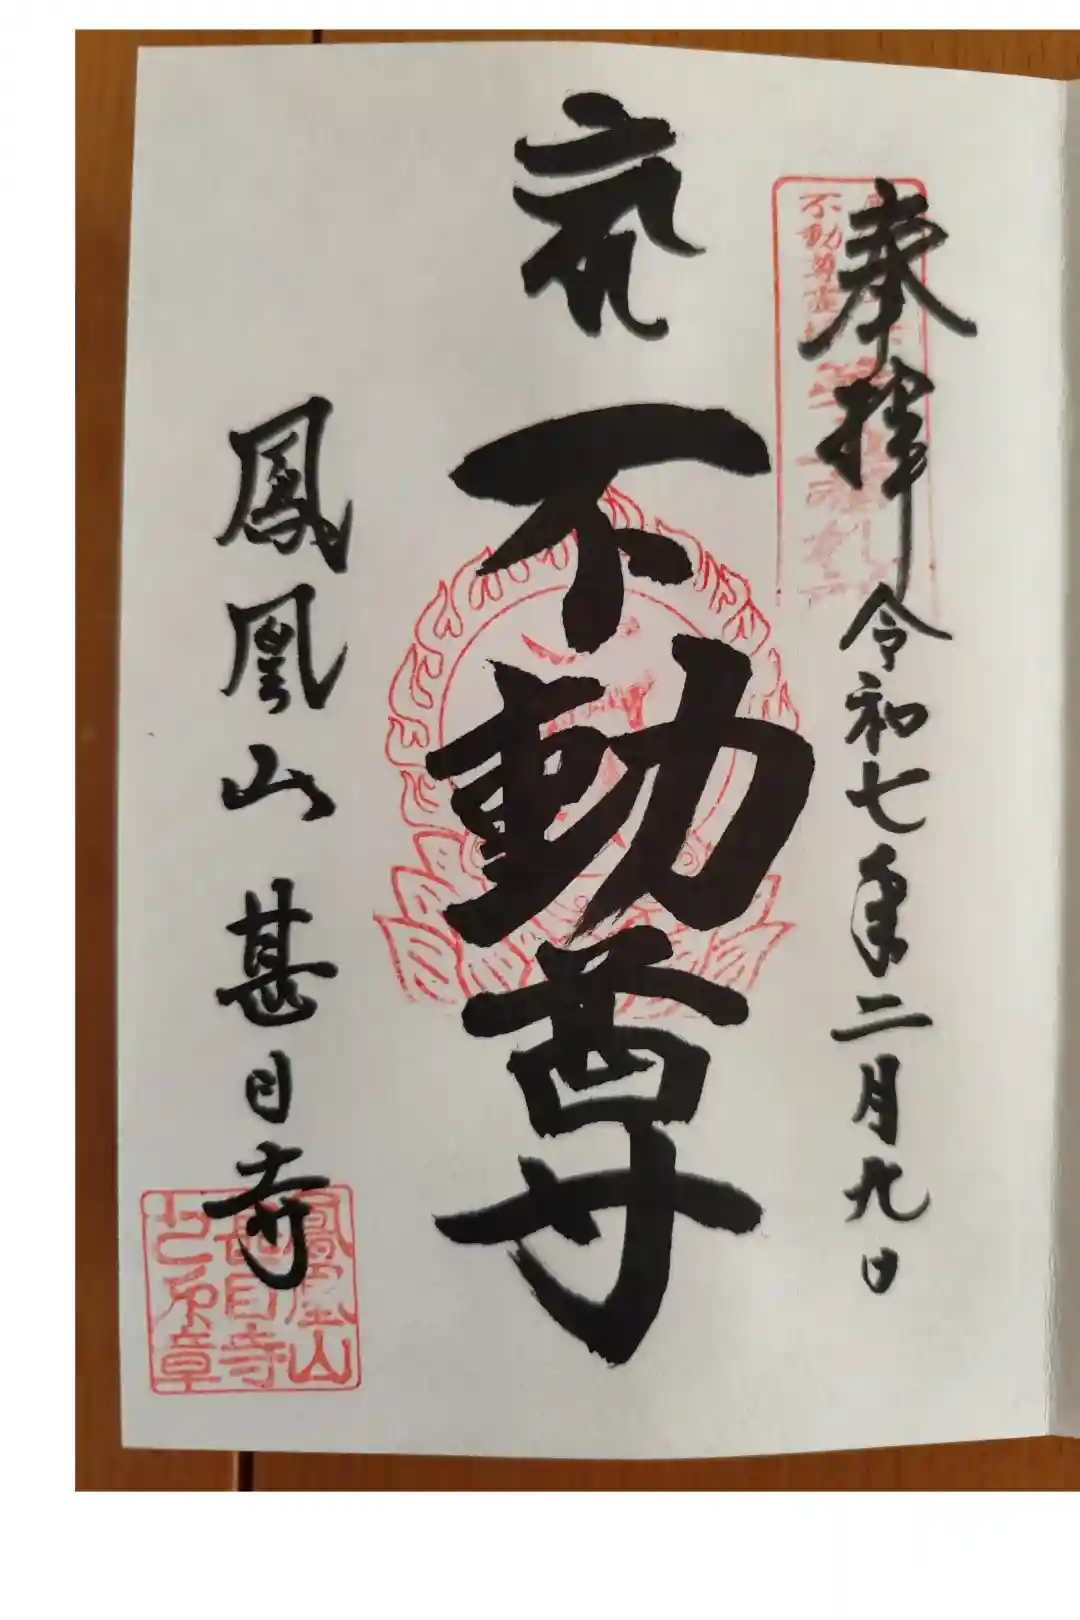 奉拝 令和七年二月九日
不動尊
鳳凰山 甚目寺
不動尊霊
鳳凰山
甚目寺
之印章